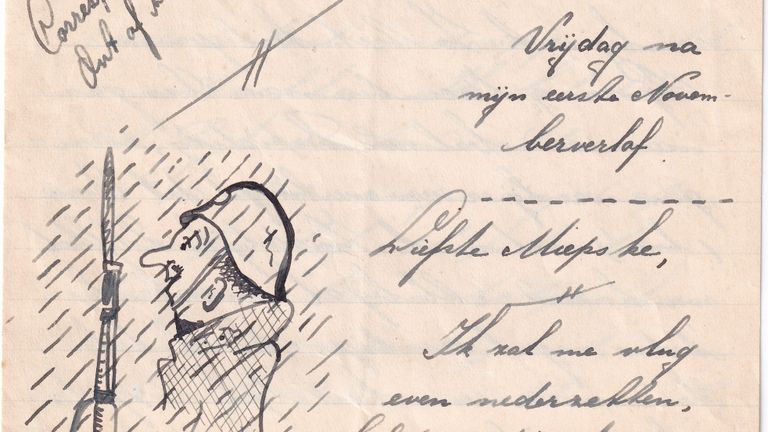 Out of
Vrijdag na
mijn eerste Novem-
berverlof
Liefste Miepske,
Ik zal me vlug
even nederzetten,